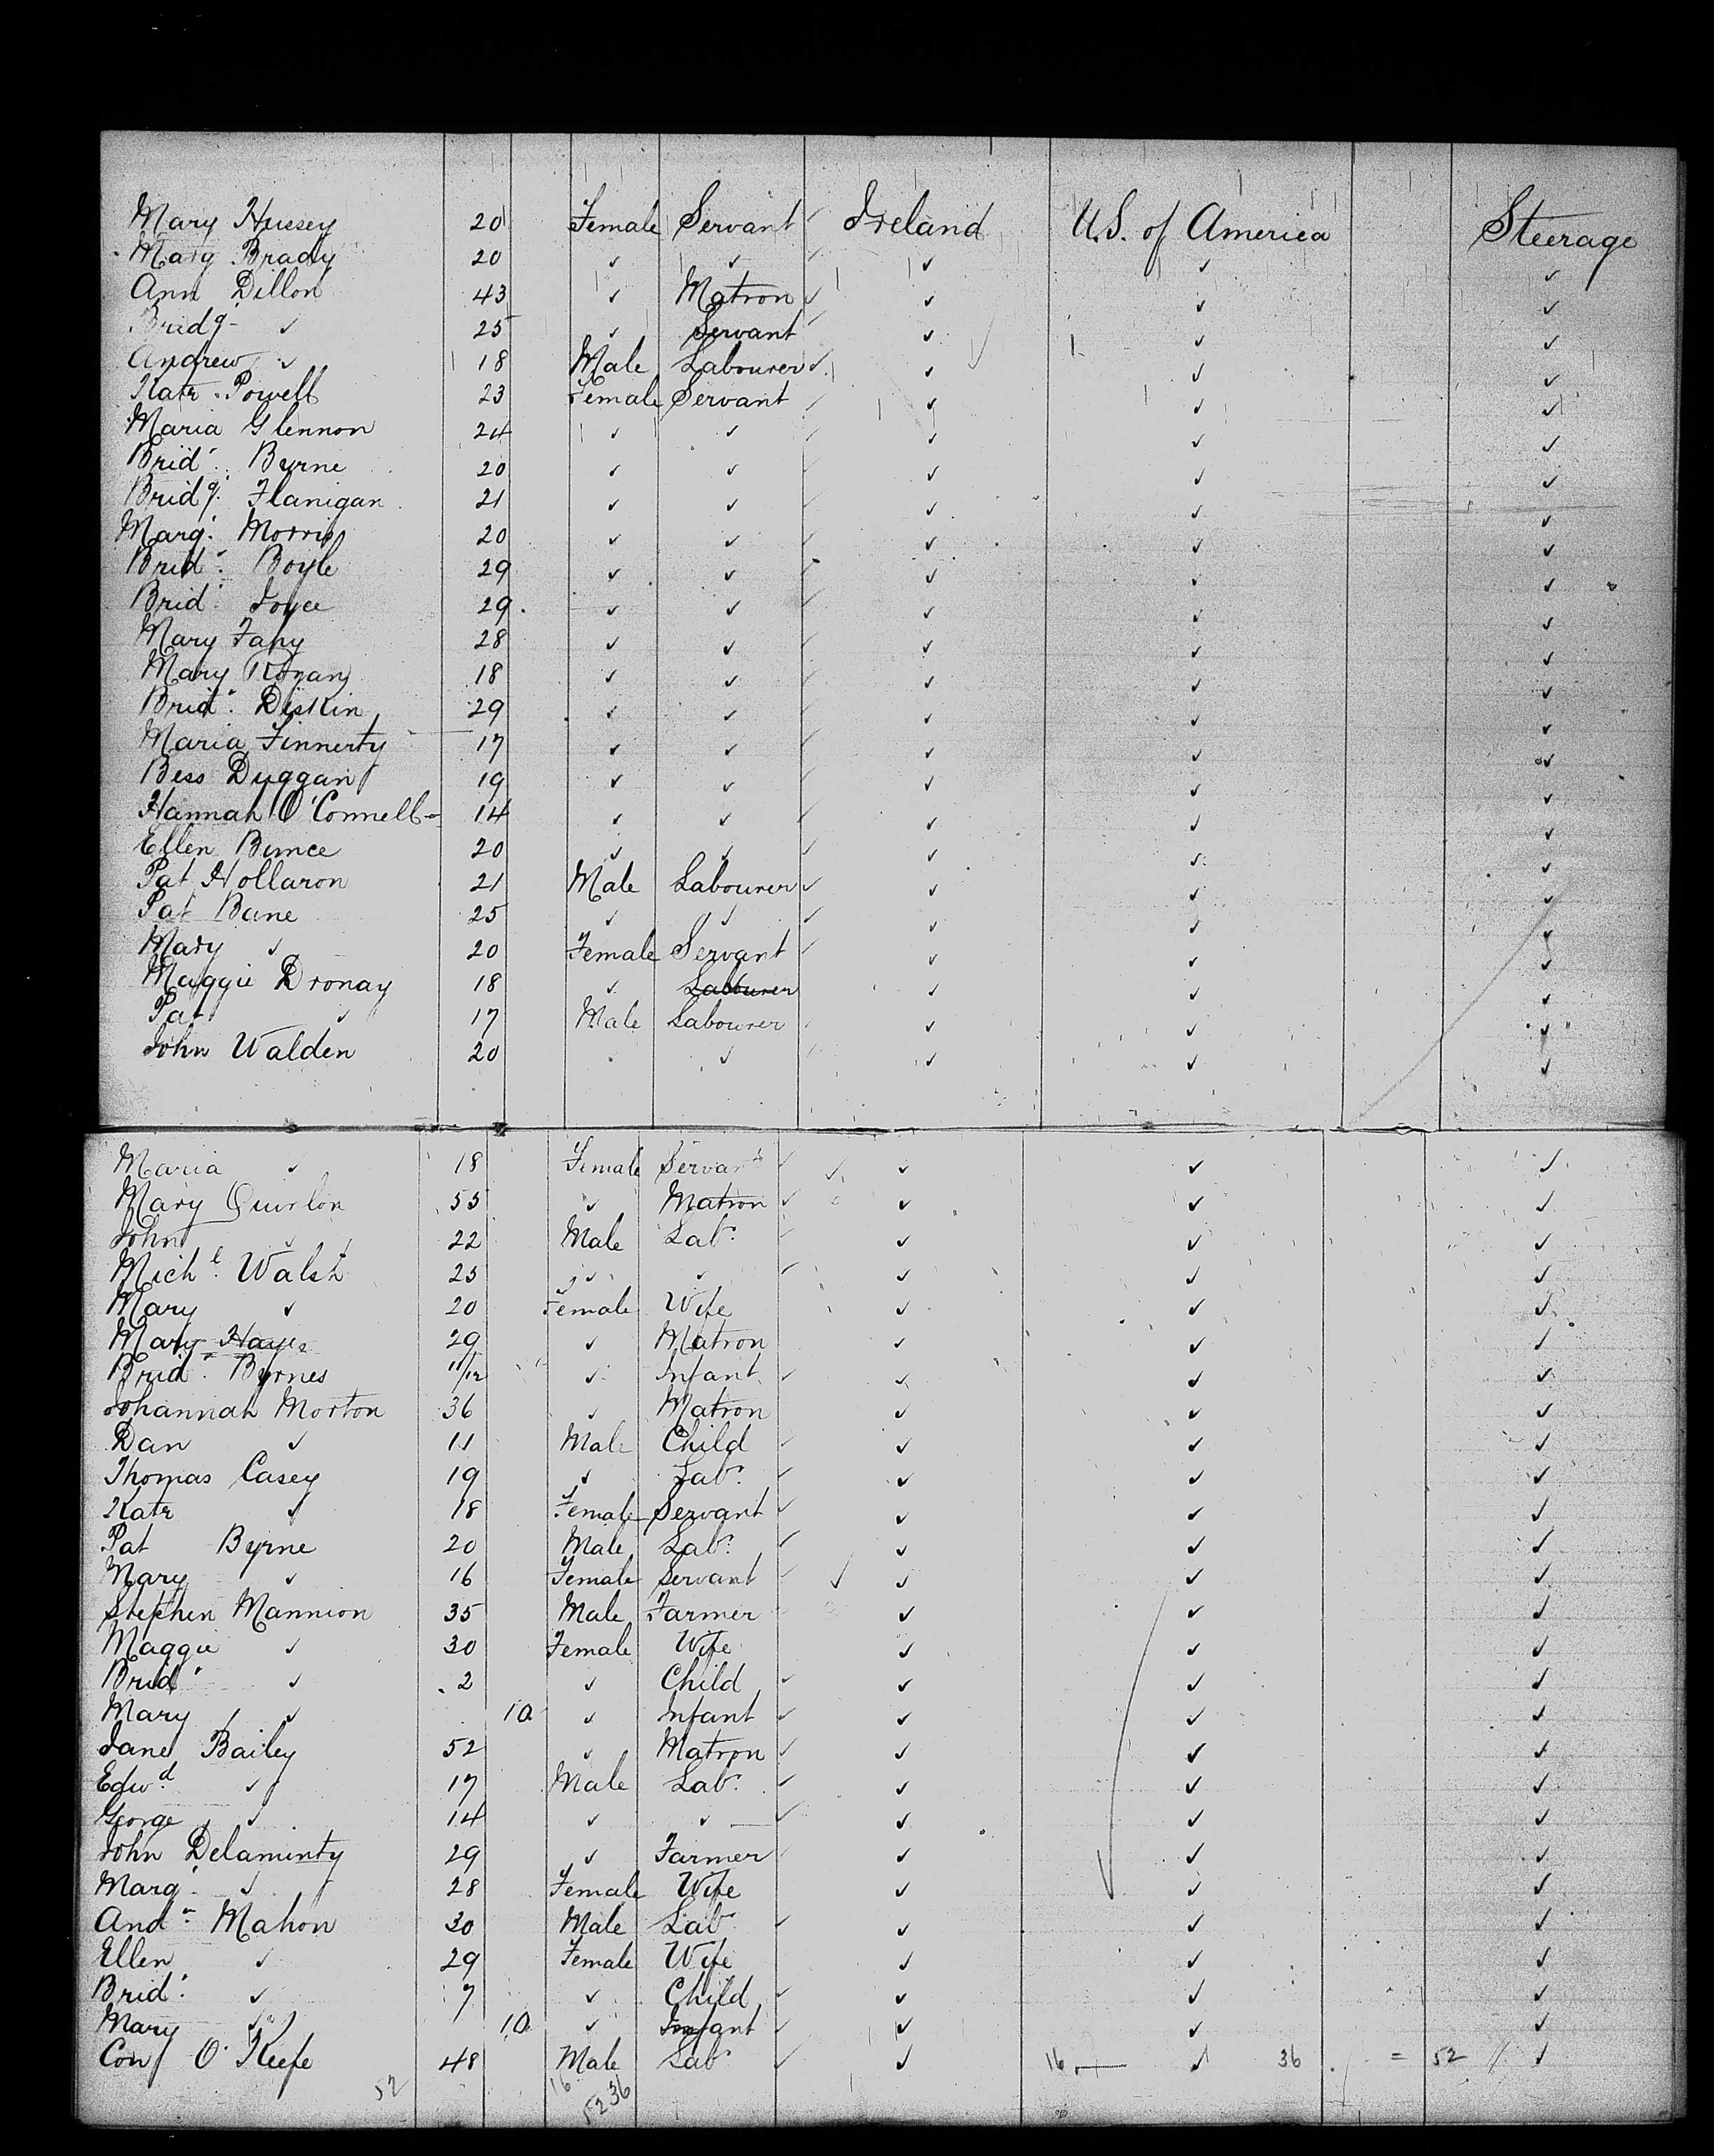 Mary Hussey 20 Female Servant ✓ Ireland U.S. of America Steerage
Mary Brady 20 ✓ ✓ ✓ ✓ ✓ ✓
Ann Dillon 43 ✓ Matron ✓ ✓ ✓ ✓
Bridg- ✓ 25 ✓ Servant ✓ ✓ ✓ ✓
Andrew ✓ 18 Male Labourer ✓ ✓ ✓ ✓
Kate Powell 23 Female Servant ✓ ✓ ✓ ✓
Maria Glennon 24 ✓ ✓ ✓ ✓ ✓ ✓
Brid. Byrne 20 ✓ ✓ ✓ ✓ ✓ ✓
Bridg. Flanigan 21 ✓ ✓ ✓ ✓ ✓ ✓
Marg. Morris 20 ✓ ✓ ✓ ✓ ✓ ✓
Brid. Boyle 29 ✓ ✓ ✓ ✓ ✓ ✓
Brid. Joyce 29 ✓ ✓ ✓ ✓ ✓ ✓
Mary Fahy 28 ✓ ✓ ✓ ✓ ✓ ✓
Mary 18 ✓ ✓ ✓ ✓ ✓ ✓
Brid. Diskin 29 ✓ ✓ ✓ ✓ ✓ ✓
Maria Finnerty 17 ✓ ✓ ✓ ✓ ✓ ✓
Bess Duggan 19 ✓ ✓ ✓ ✓ ✓ ✓
Hannah O'Connell 14 ✓ ✓ ✓ ✓ ✓ ✓
Ellen Bunce 20 ✓ ✓ ✓ ✓ ✓ ✓
Pat Hollaron 21 Male Labourer ✓ ✓ ✓ ✓
Pat Bane 25 ✓ ✓ ✓ ✓ ✓ ✓
Mary ✓ 20 Female Servant ✓ ✓ ✓ ✓
Maggie Dronay 18 ✓ Labourer ✓ ✓ ✓
Pat ✓ 17 Male Labourer ✓ ✓ ✓
John Walden 20 ✓ ✓ ✓ ✓ ✓
Maria ✓ 18 Female Servant ✓ ✓ ✓ ✓
Mary 55 ✓ Matron ✓ ✓ ✓ ✓
John ✓ 22 Male Labr. ✓ ✓ ✓
Michl. Walsh 25 ✓ ✓ ✓ ✓ ✓ ✓
Mary ✓ 20 Female Wife ✓ ✓ ✓
Mary Hayes 29 ✓ Matron ✓ ✓ ✓
Brid. Byrnes 11/12 ✓ Infant ✓ ✓ ✓ ✓
Johannah Morton 36 ✓ Matron ✓ ✓ ✓
Dan ✓ 11 Male Child ✓ ✓ ✓ ✓
Thomas Casey 19 ✓ Labr. ✓ ✓ ✓ ✓
Kate ✓ 18 Female Servant ✓ ✓ ✓ ✓
Pat Byrne 20 Male Labr. ✓ ✓ ✓ ✓
Mary ✓ 16 Female Servant ✓ ✓ ✓ ✓
Stephen Mannion 35 Male Farmer ✓ ✓ ✓
Maggie ✓ 30 Female Wife ✓ ✓ ✓
Brid. ✓ 2 ✓ Child ✓ ✓ ✓ ✓
Mary ✓ 10 ✓ Infant ✓ ✓ ✓ ✓
Jane Bailey 52 ✓ Matron ✓ ✓ ✓ ✓
Edwd. ✓ 17 Male Labr. ✓ ✓ ✓ ✓
George ✓ 14 ✓ ✓ ✓ ✓ ✓ ✓
John Delaminty 29 ✓ Farmer ✓ ✓ ✓
Marg. ✓ 28 Female Wife ✓ ✓ ✓
Andw. Mahon 30 Male Labr. ✓ ✓ ✓ ✓
Ellen ✓ 29 Female Wife ✓ ✓ ✓
Brid. ✓ 7 ✓ Child ✓ ✓ ✓ ✓
Mary ✓ 10 ✓ Infant ✓ ✓ ✓ ✓
Con O'Keefe 48 Male Labr. ✓ ✓ 16 ✓ 36 = 52 ✓
52 16 36
52